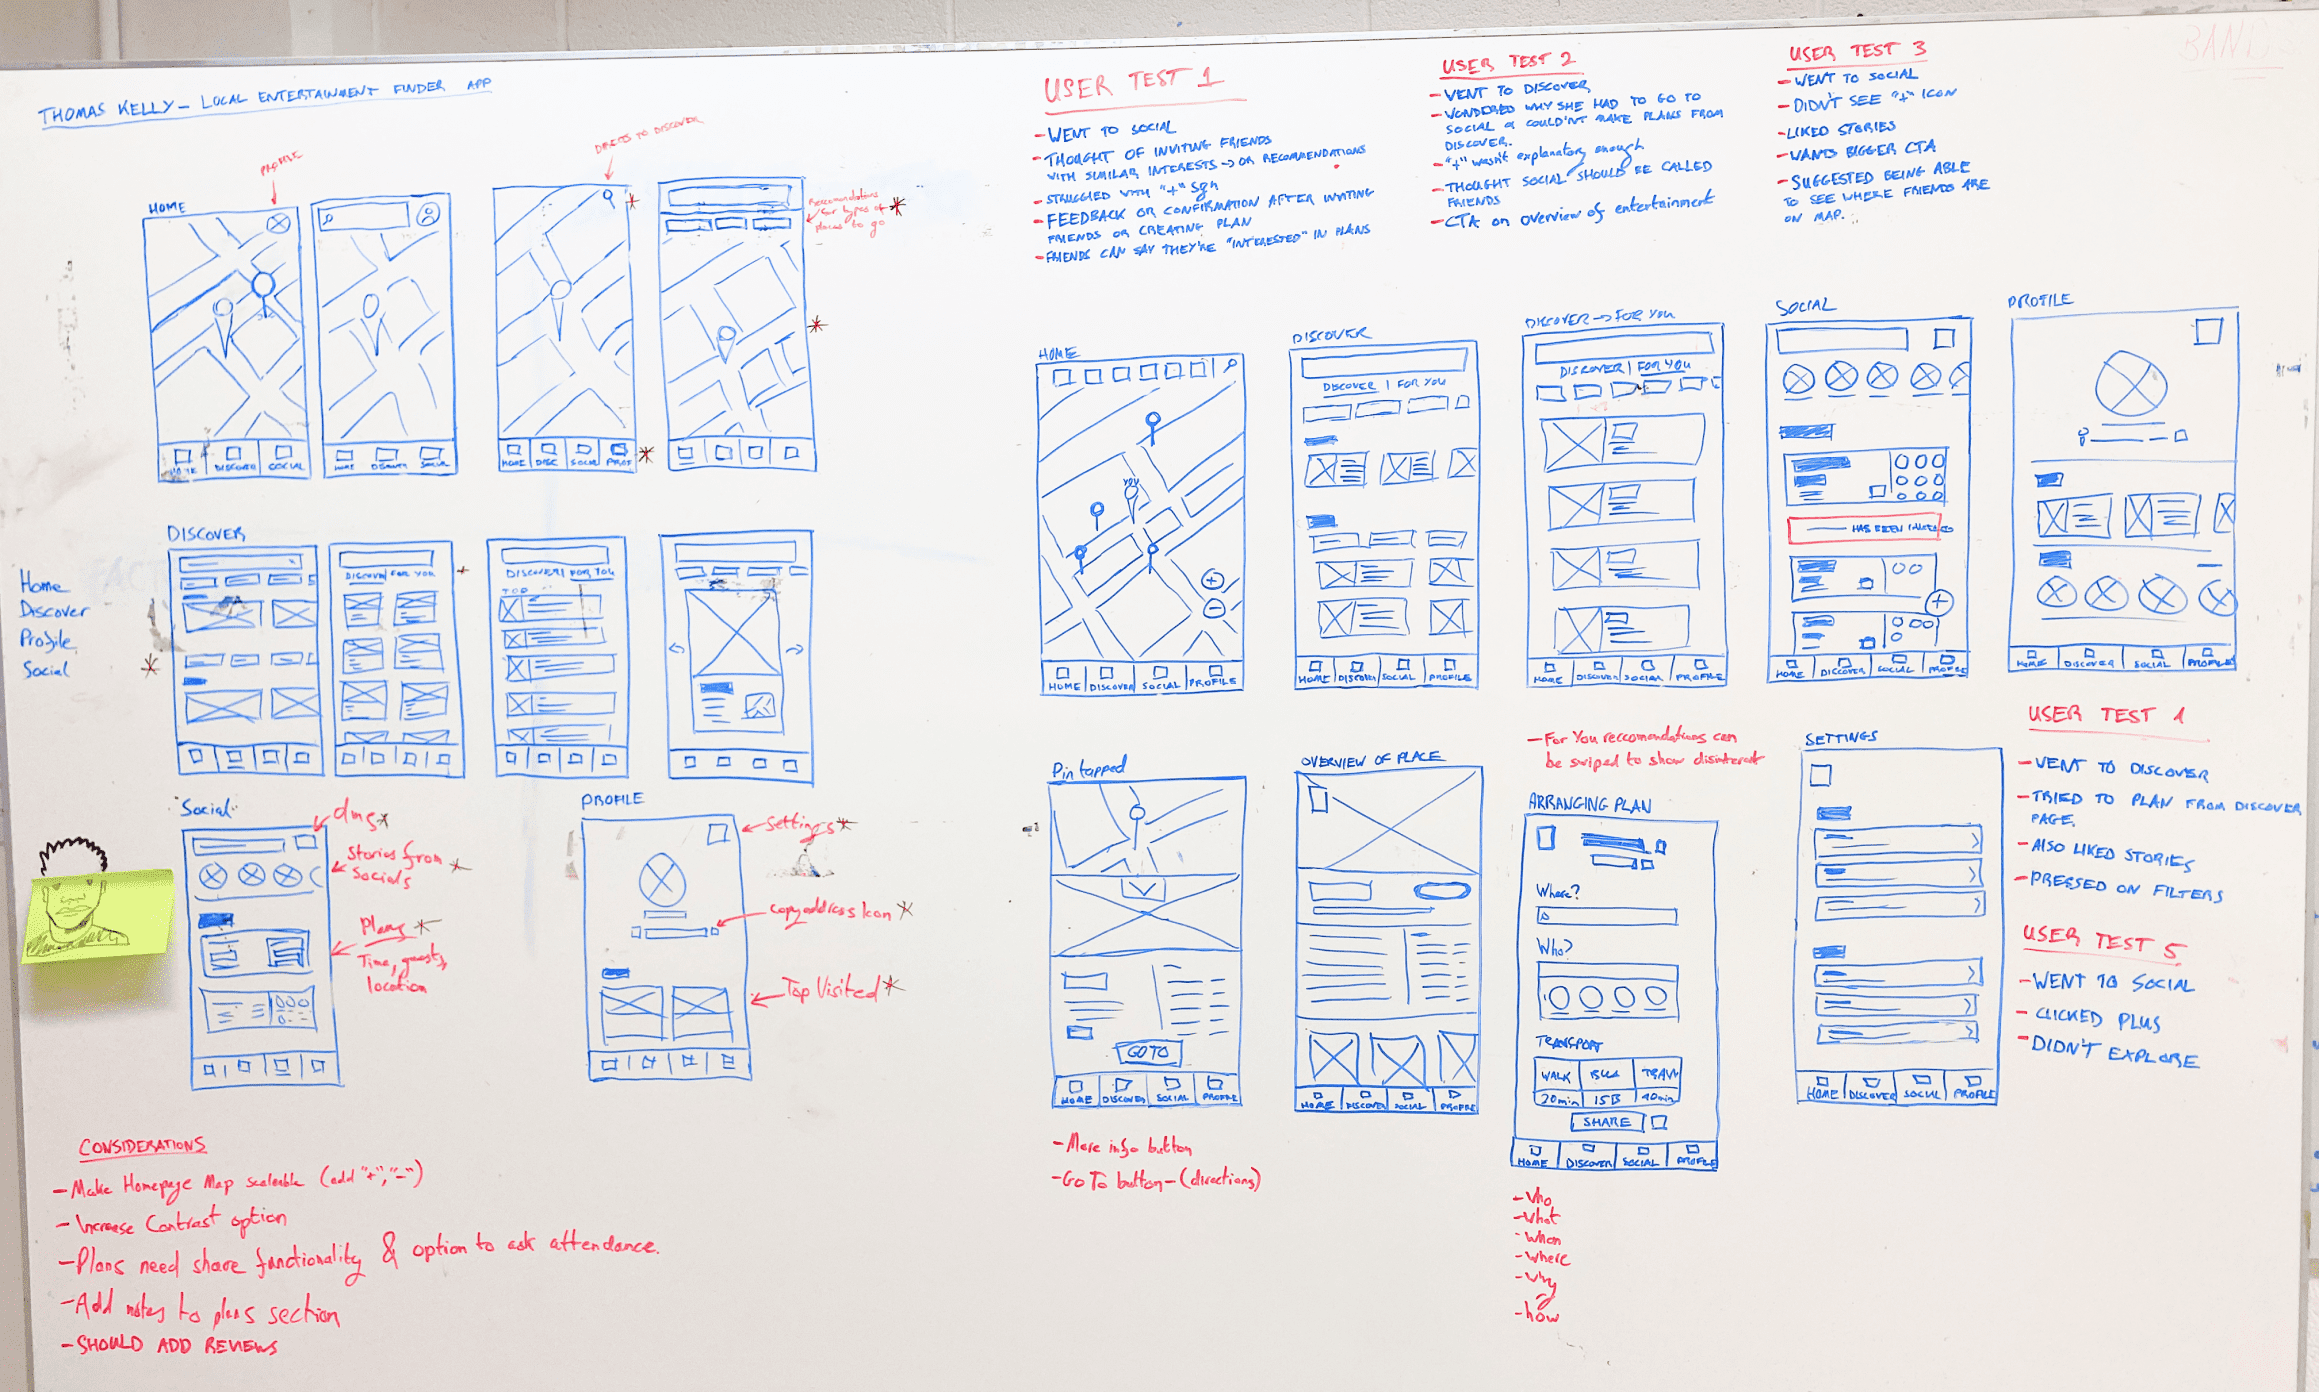 THOMAS KELLY – LOCAL ENTERTAINMENT FINDER APP
PROFILE
DIRECTS TO DISCOVER
HOME
Reccomendations
for types of
places to go
HOME DISCOVER SOCIAL
HOME DISCOVER SOCIAL
HOME DISC SOCIAL PROF
DISCOVER
Home
Discover
Profile
Social
DISCOVER FOR YOU
DISCOVER | FOR YOU
TOP
Social
dms
Stories from
socials
Plans
Time, guests,
location
PROFILE
Settings
copy address icon
Top Visited
CONSIDERATIONS
- Make Homepage Map scaleable (add "+", "-")
- Increase Contrast option
- Plans need share functionality & option to ask attendance.
- Add notes to plans section
- SHOULD ADD REVIEWS
USER TEST 1
- WENT TO SOCIAL
- THOUGHT OF INVITING FRIENDS
WITH SIMILAR INTERESTS → OR RECOMMENDATIONS
- STRUGGLED WITH "+" Sgn
- FEEDBACK OR CONFIRMATION AFTER INVITING
FRIENDS OR CREATING PLAN
- FRIENDS CAN SAY THEY'RE "INTERESTED" IN PLANS
USER TEST 2
- VENT TO DISCOVER
- VONDERED WHY SHE HAD TO GO TO
SOCIAL & COULD'NT MAKE PLANS FROM
DISCOVER.
- "+" wasn't explanatory enough
- THOUGHT SOCIAL SHOULD BE CALLED
FRIENDS
- CTA on overview of entertainment
USER TEST 3
- WENT TO SOCIAL
- DIDN'T SEE "+" ICON
- LIKED STORIES
- WANTS BIGGER CTA
- SUGGESTED BEING ABLE
TO SEE WHERE FRIENDS ARE
ON MAP.
HOME
YOU
HOME DISCOVER SOCIAL PROFILE
DISCOVER
DISCOVER | FOR YOU
HOME DISCOVER SOCIAL PROFILE
DISCOVER → FOR YOU
DISCOVER | FOR YOU
HOME DISCOVER SOCIAL PROFILE
SOCIAL
HAS BEEN
HOME DISCOVER SOCIAL PROFILE
PROFILE
HOME DISCOVER SOCIAL PROFILE
Pin tapped
GO TO
HOME DISCOVER SOCIAL PROFILE
- More info button
- Go To button - (directions)
OVERVIEW OF PLACE
HOME DISCOVER SOCIAL PROFILE
- For You reccomendations can
be swiped to show disinterest
ARRANGING PLAN
Where?
Who?
TRANSPORT
WALK BUS TRAM
20min 15 40min
SHARE
HOME DISCOVER SOCIAL PROFILE
- Who
- What
- When
- Where
- Why
- how
SETTINGS
HOME DISCOVER SOCIAL PROFILE
USER TEST 4
- VENT TO DISCOVER
- TRIED TO PLAN FROM DISCOVER
PAGE.
- ALSO LIKED STORIES
- PRESSED ON FILTERS
USER TEST 5
- WENT TO SOCIAL
- CLICKED PLUS
- DIDN'T EXPLORE